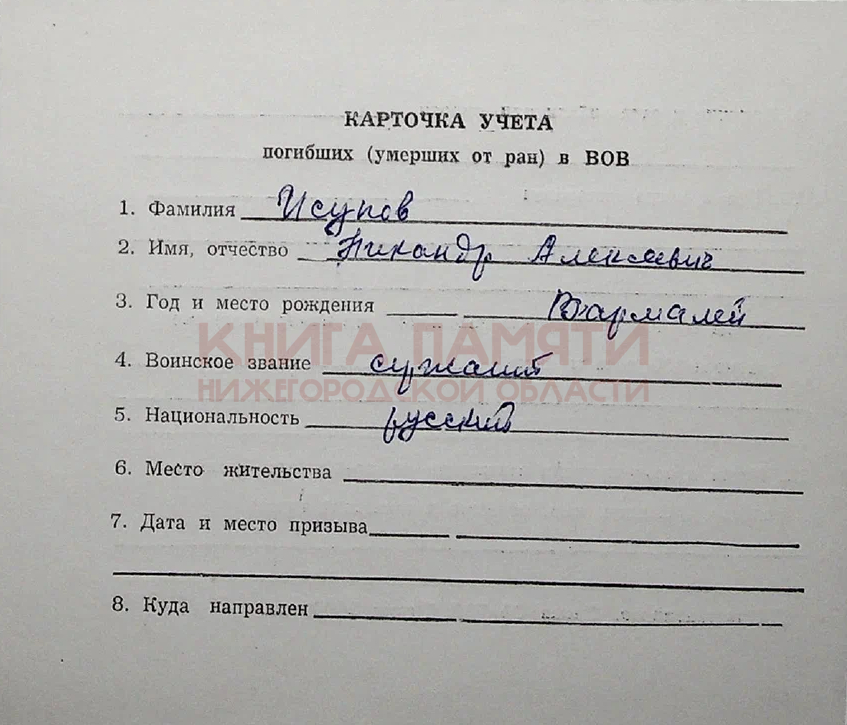 КАРТОЧКА УЧЕТА
погибших (умерших от ран) в ВОВ
1. Фамилия Исупов
2. Имя, отчество Никандр Алексеевич
3. Год и место рождения Вармалей
КНИГА ПАМЯТИ
4. Воинское звание сержант
НИЖЕГОРОДСКОЙ ОБЛАСТИ
5. Национальность русский
6. Место жительства
7. Дата и место призыва
8. Куда направлен